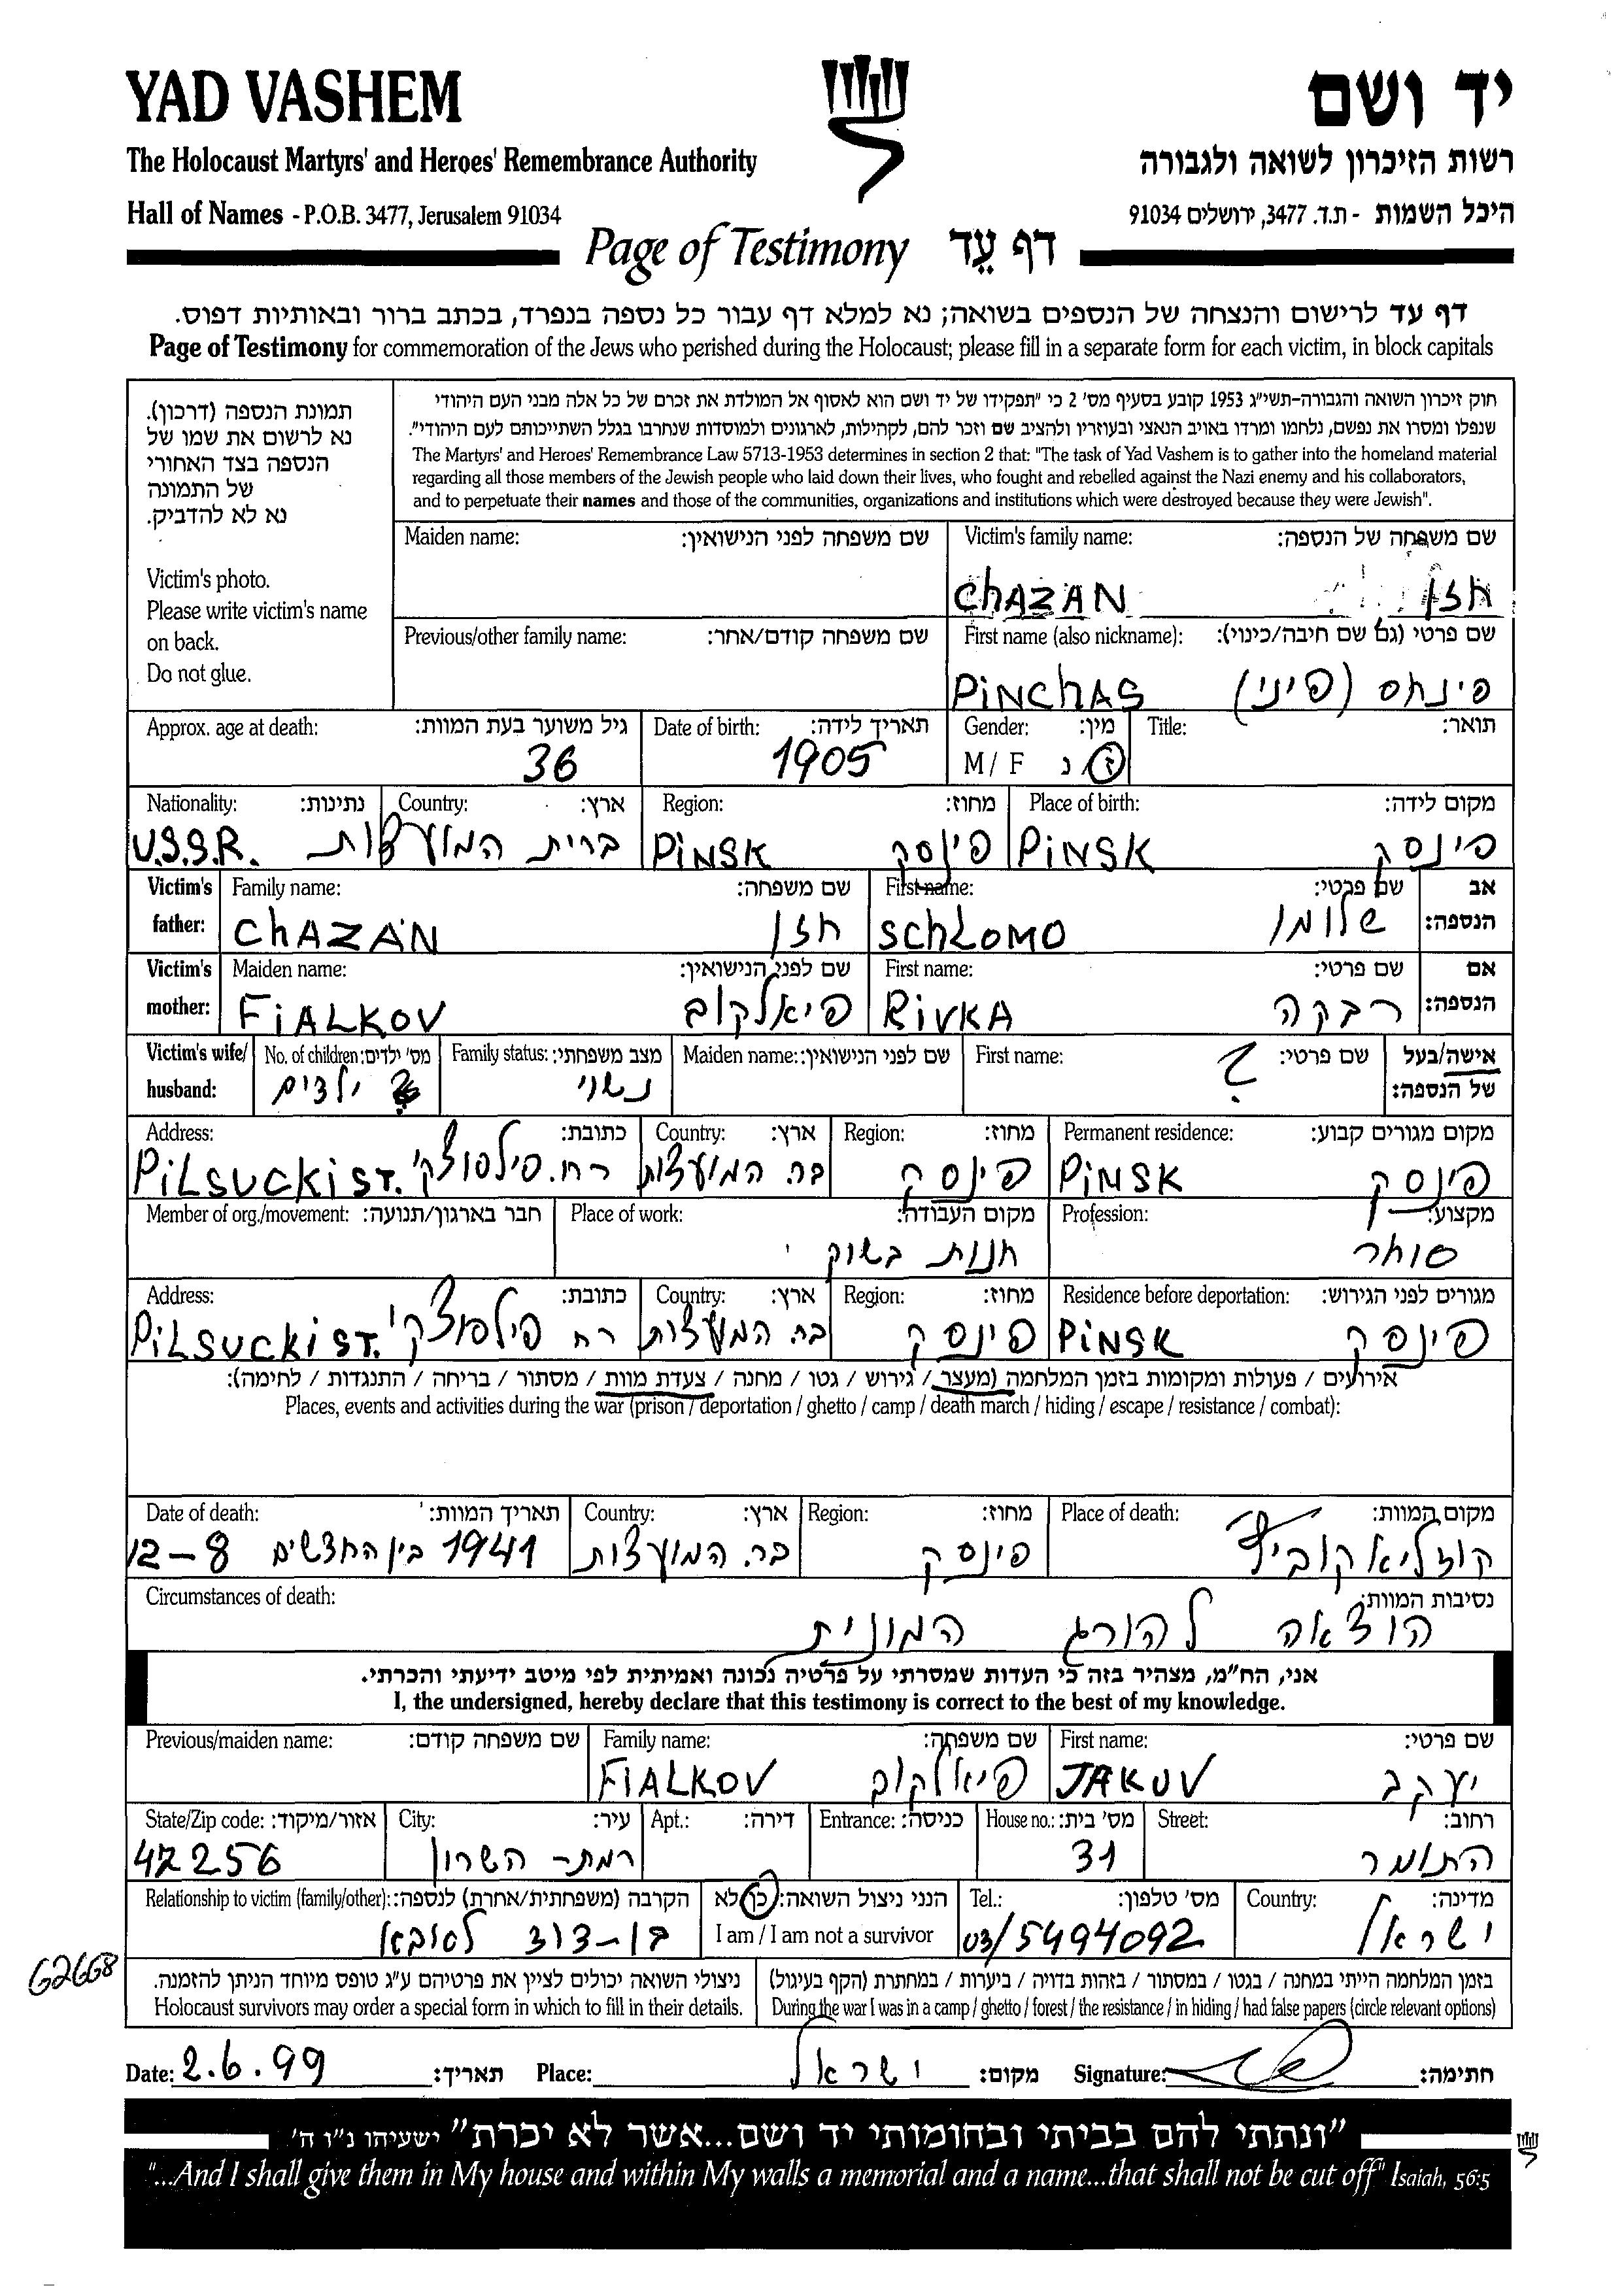 YAD VASHEM
יד ושם
The Holocaust Martyrs' and Heroes' Remembrance Authority
רשות הזיכרון לשואה ולגבורה
Hall of Names - P.O.B. 3477, Jerusalem 91034
היכל השמות - ת.ד. 3477, ירושלים 91034
Page of Testimony דף עֵד
דף עד לרישום והנצחה של הנספים בשואה; נא למלא דף עבור כל נספה בנפרד, בכתב ברור ובאותיות דפוס.
Page of Testimony for commemoration of the Jews who perished during the Holocaust; please fill in a separate form for each victim, in block capitals
תמונת הנספה (דרכון).
נא לרשום את שמו של
הנספה בצד האחורי
של התמונה
נא לא להדביק.
Victim's photo.
Please write victim's name
on back.
Do not glue.
חוק זיכרון השואה והגבורה-תשי"ג 1953 קובע בסעיף מס' 2 כי "תפקידו של יד ושם הוא לאסוף אל המולדת את זכרם של כל אלה מבני העם היהודי
שנפלו ומסרו את נפשם, נלחמו ומרדו באויב הנאצי ובעוזריו ולהציב שם וזכר להם, לקהילות, לארגונים ולמוסדות שנחרבו בגלל השתייכותם לעם היהודי".
The Martyrs' and Heroes' Remembrance Law 5713-1953 determines in section 2 that: "The task of Yad Vashem is to gather into the homeland material
regarding all those members of the Jewish people who laid down their lives, who fought and rebelled against the Nazi enemy and his collaborators,
and to perpetuate their names and those of the communities, organizations and institutions which were destroyed because they were Jewish".
Maiden name: שם משפחה לפני הנישואין:
Victim's family name: שם משפחה של הנספה:
CHAZAN חזן
Previous/other family name: שם משפחה קודם/אחר:
First name (also nickname): שם פרטי (גם שם חיבה/כינוי):
PINCHAS פינחס (פיני)
Approx. age at death: גיל משוער בעת המוות:
36
Date of birth: תאריך לידה:
1905
Gender: מין:
M / F ז נ
Title: תואר:
Nationality: נתינות: Country: ארץ:
U.S.S.R. ברית המועצות
Region: מחוז:
PINSK פינסק
Place of birth: מקום לידה:
PINSK פינסק
Victim's father: אב הנספה:
Family name: שם משפחה:
CHAZAN חזן
First name: שם פרטי:
SCHLOMO שלומו
Victim's mother: אם הנספה:
Maiden name: שם לפני הנישואין:
FIALKOV פיאלקוב
First name: שם פרטי:
RIVKA רבקה
Victim's wife/ husband: אישה/בעל של הנספה:
No. of children: מס' ילדים:
ילדים
Family status: מצב משפחתי:
נשוי
Maiden name: שם לפני הנישואין:
First name: שם פרטי:
?
Address: כתובת:
PILSUCKI ST. רח. פילסוצקי
Country: ארץ:
בר. המועצות
Region: מחוז:
פינסק
Permanent residence: מקום מגורים קבוע:
PINSK פינסק
Member of org./movement: חבר בארגון/תנועה:
Place of work: מקום העבודה:
חנות בשוק
Profession: מקצוע:
סוחר
Address: כתובת:
PILSUCKI ST. רח פילסוצקי
Country: ארץ:
בר. המועצות
Region: מחוז:
פינסק
Residence before deportation: מגורים לפני הגירוש:
PINSK פינסק
אירועים / פעולות ומקומות בזמן המלחמה (מעצר / גירוש / גטו / מחנה / צעדת מוות / מסתור / בריחה / התנגדות / לחימה):
Places, events and activities during the war (prison / deportation / ghetto / camp / death march / hiding / escape / resistance / combat):
Date of death: תאריך המוות:
1941 בין החדשים 8-12
Country: ארץ:
בר. המועצות
Region: מחוז:
פינסק
Place of death: מקום המוות:
Circumstances of death: נסיבות המוות:
הוצאה להורג המונית
אני, הח"מ, מצהיר בזה כי העדות שמסרתי על פרטיה נכונה ואמיתית לפי מיטב ידיעתי והכרתי.
I, the undersigned, hereby declare that this testimony is correct to the best of my knowledge.
Previous/maiden name: שם משפחה קודם:
Family name: שם משפחה:
FIALKOV פיאלקוב
First name: שם פרטי:
JAKUV יעקב
State/Zip code: אזור/מיקוד:
47256
City: עיר:
רמת-השרון
Apt.: דירה:
Entrance: כניסה:
House no.: מס' בית:
31
Street: רחוב:
התומר
Relationship to victim (family/other): הקרבה (משפחתית/אחרת) לנספה:
בן-דוד לסבא
הנני ניצול השואה: כן לא
I am / I am not a survivor
Tel.: מס' טלפון:
03/5494092
Country: מדינה:
ישראל
62668
ניצולי השואה יכולים לציין את פרטיהם ע"ג טופס מיוחד הניתן להזמנה.
Holocaust survivors may order a special form in which to fill in their details.
בזמן המלחמה הייתי במחנה / בגטו / במסתור / בזהות בדויה / ביערות / במחתרת (הקף בעיגול)
During the war I was in a camp / ghetto / forest / the resistance / in hiding / had false papers (circle relevant options)
Date: 2.6.99 תאריך: Place: ישראל מקום: Signature: חתימה:
"ונתתי להם בביתי ובחומותי יד ושם...אשר לא יכרת" ישעיהו נ"ו ה'
"...And I shall give them in My house and within My walls a memorial and a name...that shall not be cut off" Isaiah, 56:5